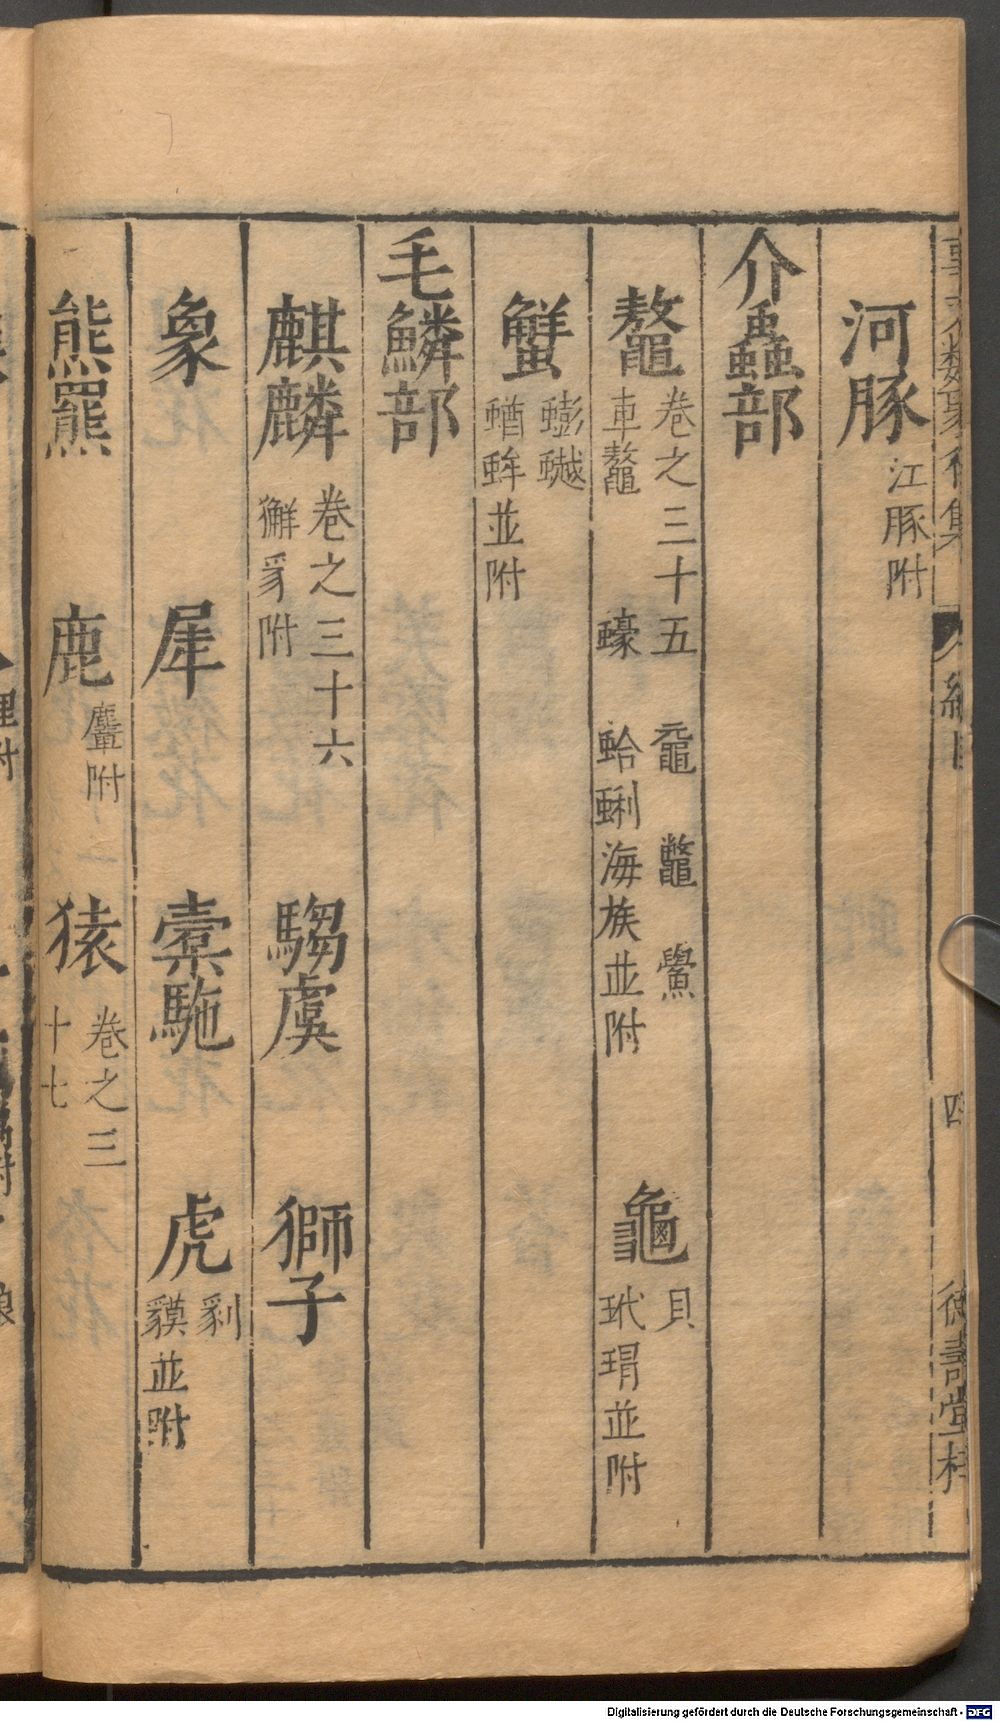 事文類聚後集 綱目 四 德壽堂梓
河豚 江豚附
介蟲部
鼇 卷之三十五 黿 鼈 鱟
車鼇 蠔 蛤蜊海族並附
龜 貝
玳瑁並附
蟹 蟛𧑅
蝤蛑並附
毛鱗部
麒麟 卷之三十六
獬豸附
騶虞 獅子
象 犀 橐駞 虎
貘並附
熊羆 鹿 麠附 猿 卷之三
十七
Digitalisierung gefördert durch die Deutsche Forschungsgemeinschaft - DFG